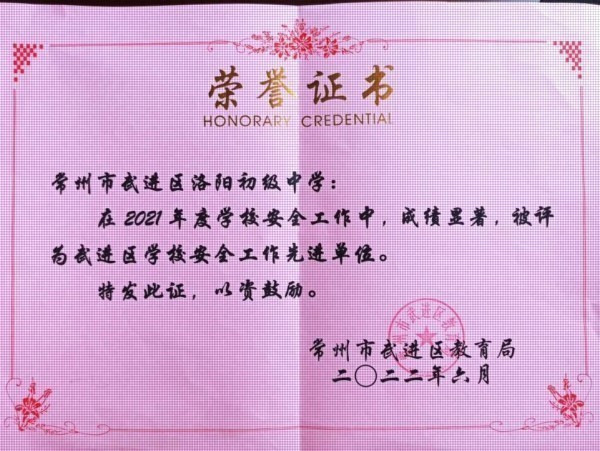 荣誉证书
HONORARY CREDENTIAL
常州市武进区洛阳初级中学：
在2021年度学校安全工作中，成绩显著，被评
为武进区学校安全工作先进单位。
特发此证，以资鼓励。
常州市武进区教育局
二〇二二年六月